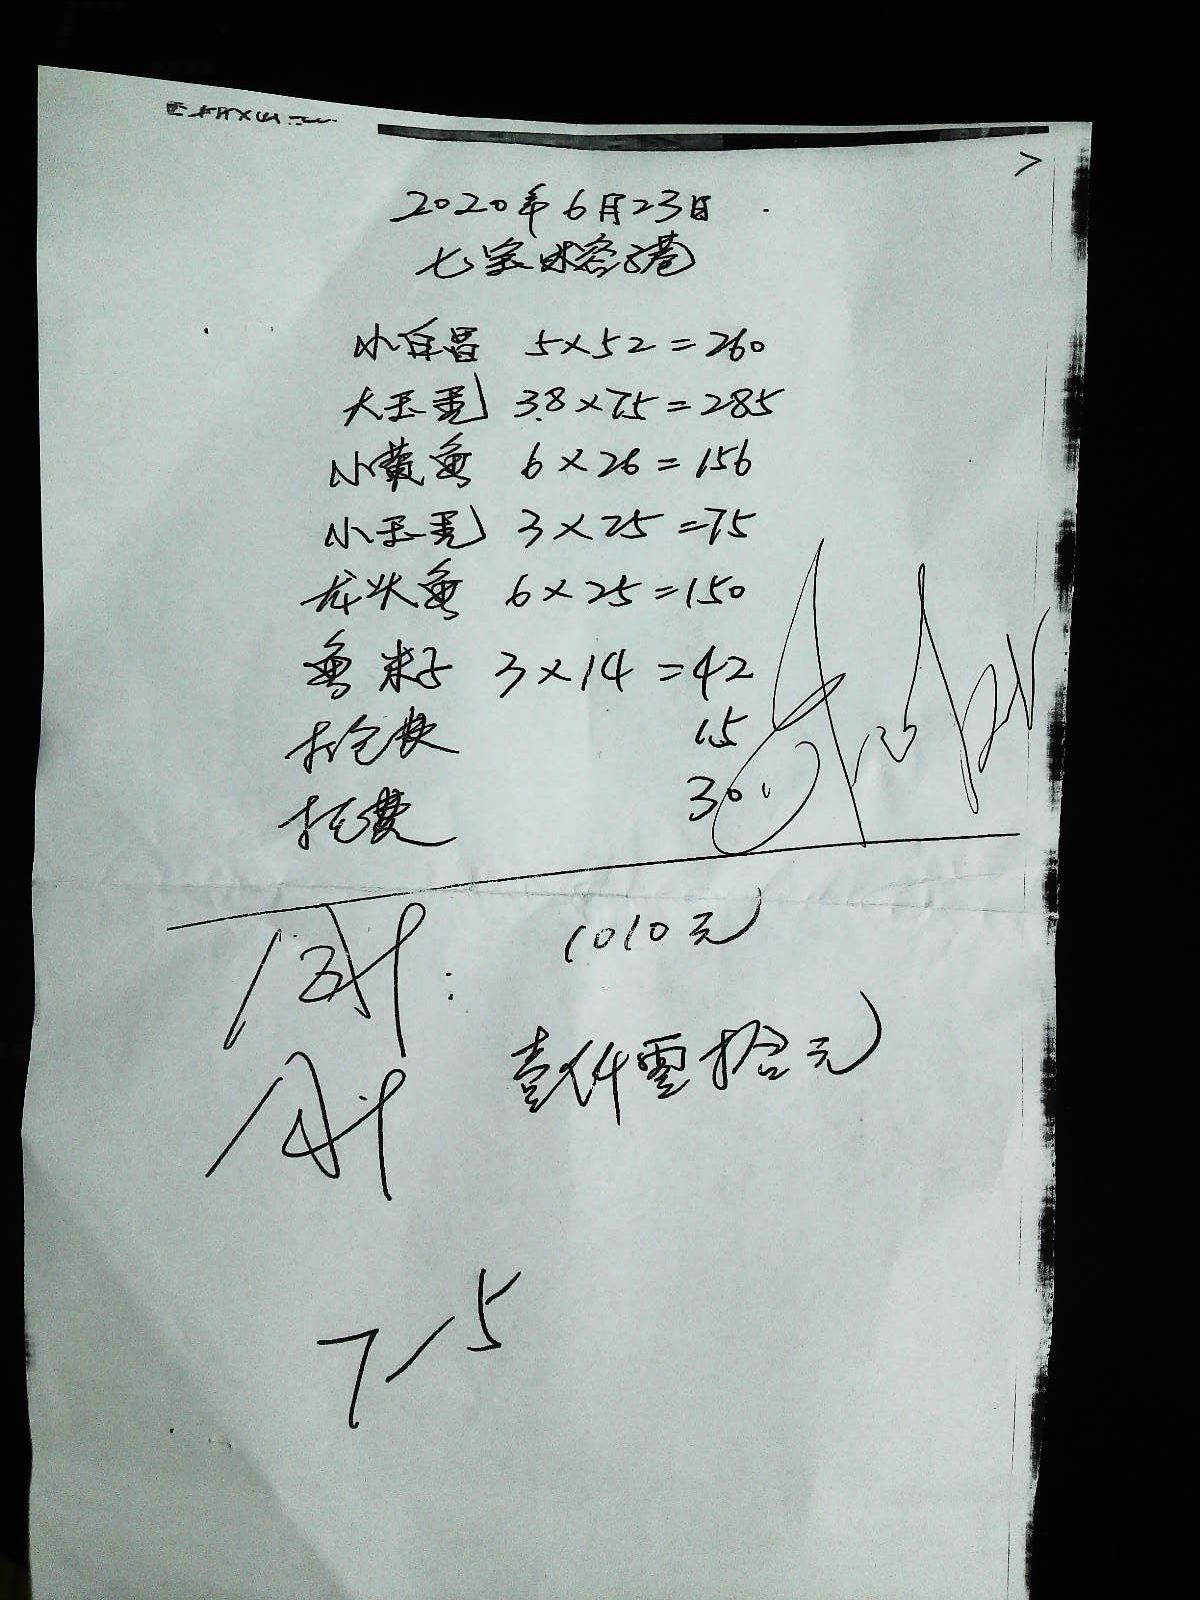 2020年6月23日
七宝
小白昌 5×52=260
大玉秃 3.8×75=285
小黄鱼 6×26=156
小玉秃 3×25=75
龙头鱼 6×25=150
鱼 3×14=42
15
托费 30
合计: 1010元
壹仟零拾元
7/5